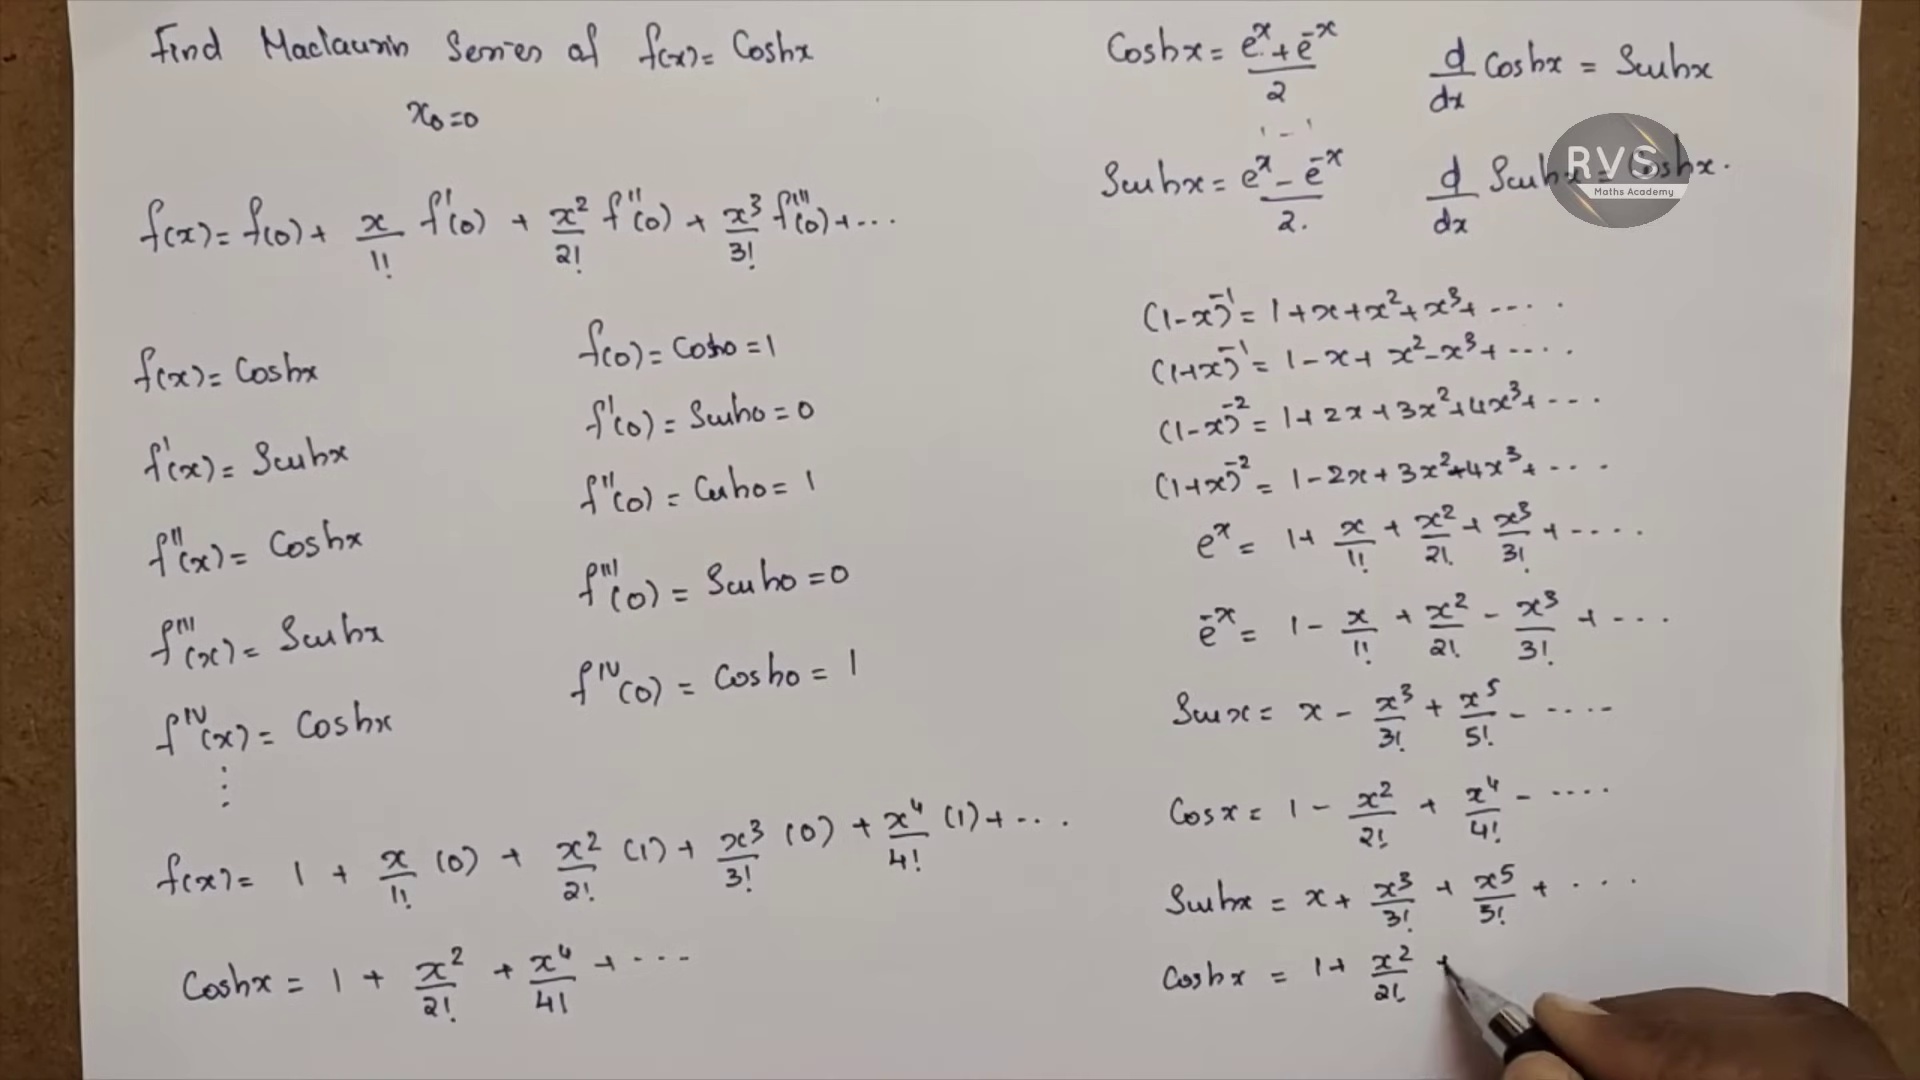 Find Maclaurin Series of f(x) = Coshx
x₀=0
f(x) = f(0) + x/1! f'(0) + x²/2! f''(0) + x³/3! f'''(0) + ...
f(x) = Coshx
f'(x) = Sinhx
f''(x) = Coshx
f'''(x) = Sinhx
f^IV(x) = Coshx
⋮
f(0) = Cosh0 = 1
f'(0) = Sinh0 = 0
f''(0) = Cosh0 = 1
f'''(0) = Sinh0 = 0
f^IV(0) = Cosh0 = 1
f(x) = 1 + x/1! (0) + x²/2! (1) + x³/3! (0) + x⁴/4! (1) + ...
Coshx = 1 + x²/2! + x⁴/4! + ...
Coshx = (e^x + e^-x)/2
d/dx Coshx = Sinhx
Sinhx = (e^x - e^-x)/2.
d/dx Sinhx = Coshx.
RVS
Maths Academy
(1-x)^-1 = 1+x+x²+x³+ ....
(1+x)^-1 = 1-x+x²-x³+ ....
(1-x)^-2 = 1+2x+3x²+4x³+ ...
(1+x)^-2 = 1-2x+3x²-4x³+ ....
e^x = 1+ x/1! + x²/2! + x³/3! + ....
e^-x = 1 - x/1! + x²/2! - x³/3! + ....
Sinx = x - x³/3! + x⁵/5! - ....
Cosx = 1 - x²/2! + x⁴/4! - ....
Sinhx = x + x³/3! + x⁵/5! + ...
Coshx = 1+ x²/2! +